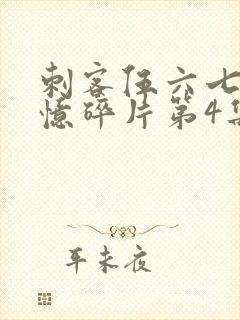 刺客伍六七
憶碎片第4集
耳未夜